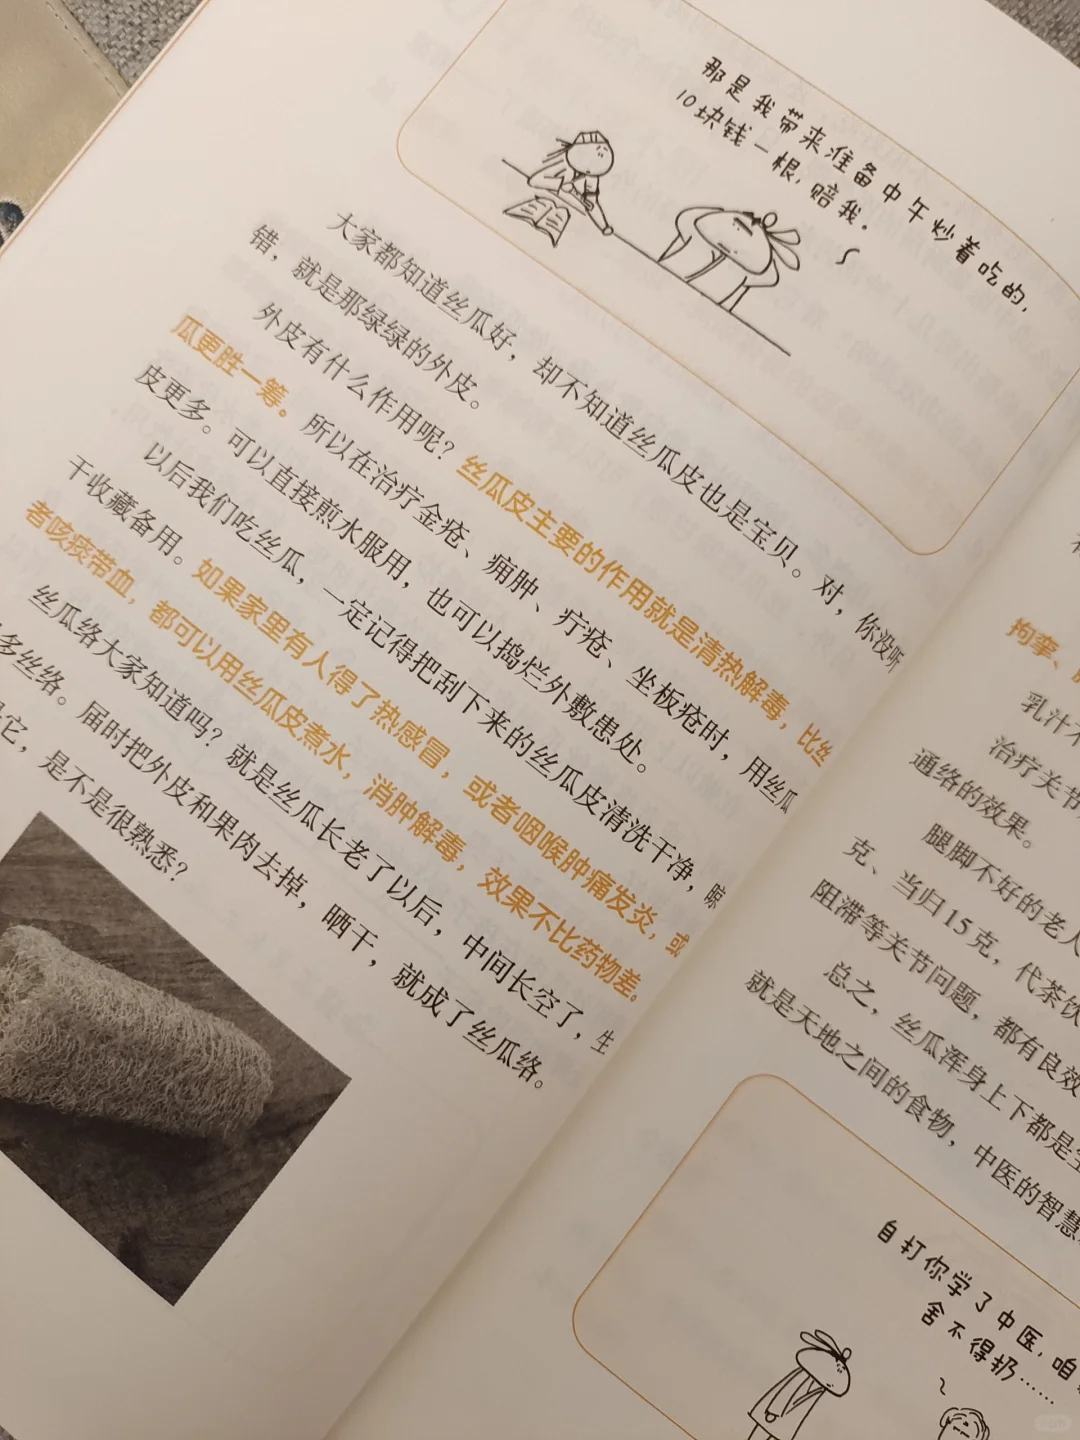 那是我带来准备中午炒着吃的,
10块钱一根,赔我。
大家都知道丝瓜好，却不知道丝瓜皮也是宝贝。对，你没听
错，就是那绿绿的外皮。
外皮有什么作用呢？丝瓜皮主要的作用就是清热解毒，比丝
瓜更胜一筹。所以在治疗金疮、痈肿、疔疮、坐板疮时，用丝瓜
皮更多。可以直接煎水服用，也可以捣烂外敷患处。
以后我们吃丝瓜，一定记得把刮下来的丝瓜皮清洗干净，晾
干收藏备用。如果家里有人得了热感冒，或者咽喉肿痛发炎，或
者咳痰带血，都可以用丝瓜皮煮水，消肿解毒，效果不比药物差。
丝瓜络大家知道吗？就是丝瓜长老了以后，中间长空了，生
多丝络。届时把外皮和果肉去掉，晒干，就成了丝瓜络。
它，是不是很熟悉？
拘挛、
乳汁不
治疗关节
通络的效果。
腿脚不好的老人
克、当归15克，代茶饮
阻滞等关节问题，都有良效
总之，丝瓜浑身上下都是宝
就是天地之间的食物，中医的智慧
自打你学了中医,咱
舍不得扔……